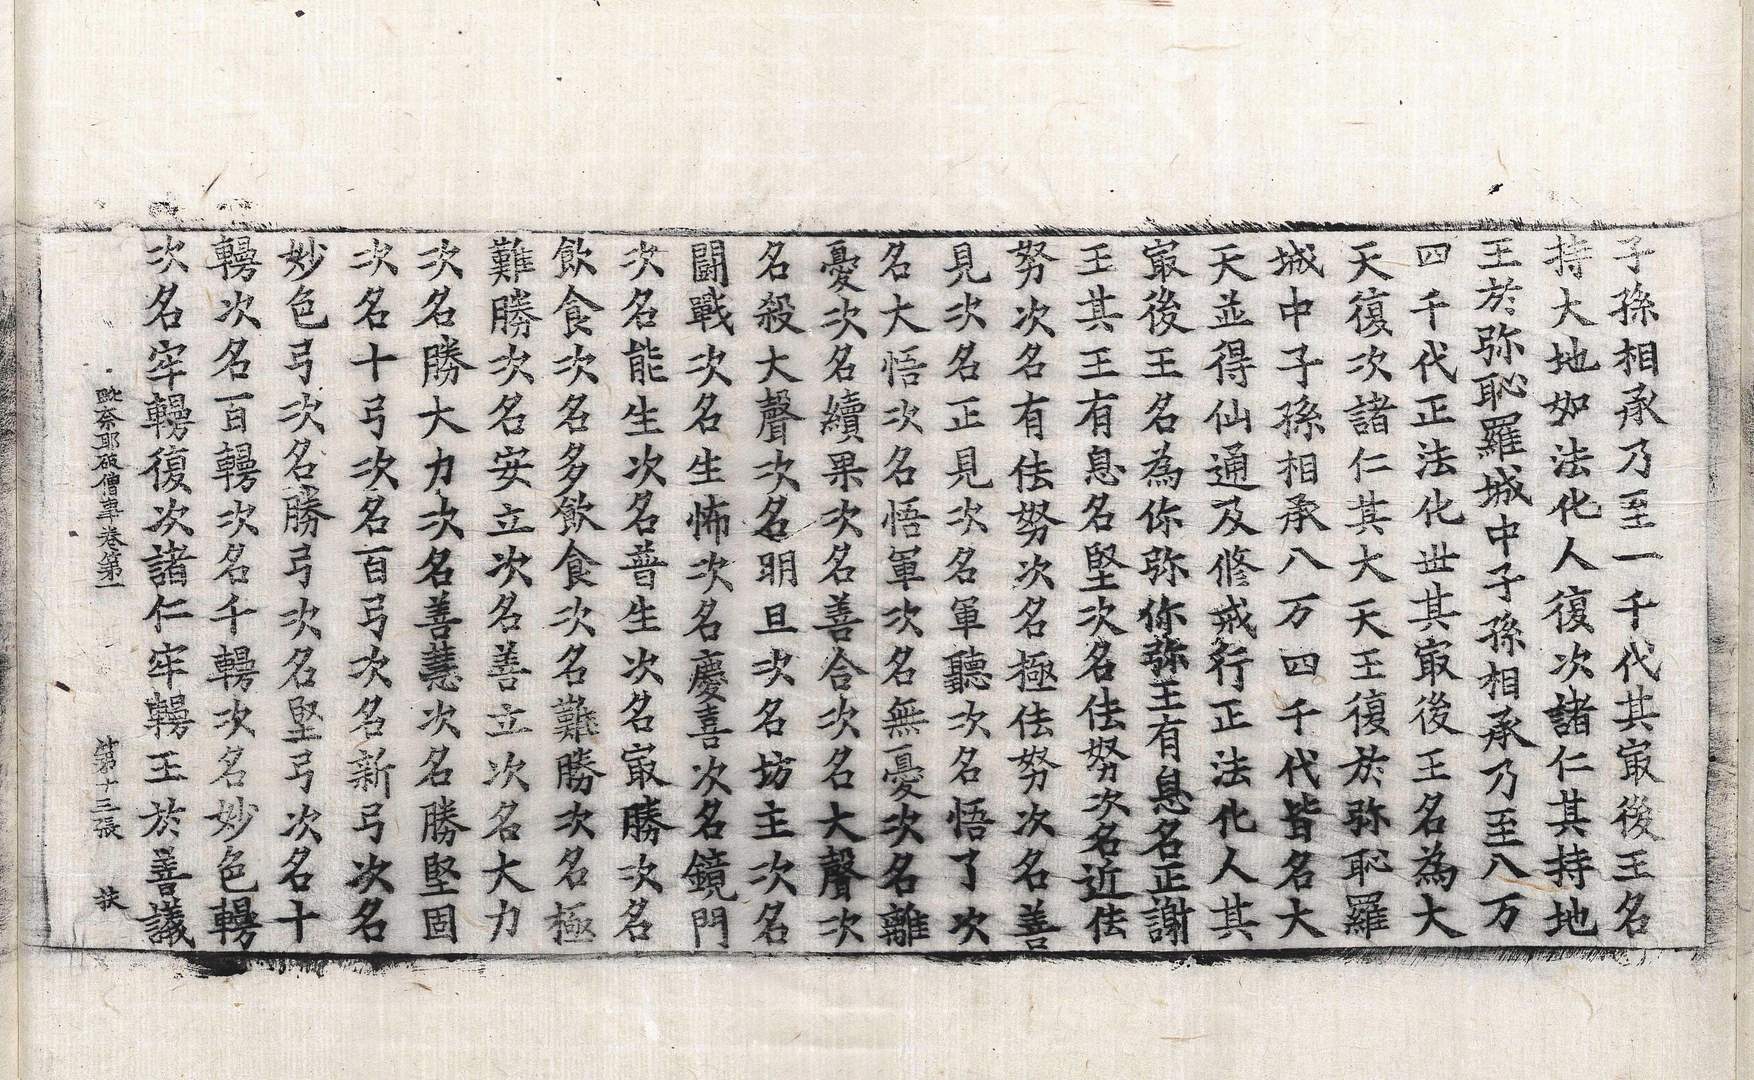 子孫相承乃至一千代其㝡後王名
持大地如法化人復次諸仁其持地
王於弥恥羅城中子孫相承乃至八万
四千代正法化世其㝡後王名為大
天復次諸仁其大天王復於弥恥羅
城中子孫相承八万四千代皆名大
天並得仙通及修戒行正法化人其
㝡後王名為你弥你弥王有息名正謝
王其王有息名堅次名佉努次名近佉
努次名有佉努次名極佉努次名善
見次名正見次名軍聽次名悟了次
名大悟次名悟軍次名無憂次名離
憂次名續果次名善合次名大聲次
名殺大聲次名明旦次名坊主次名
闘戰次名生怖次名慶喜次名鏡門
次名能生次名普生次名㝡勝次名
飲食次名多飲食次名難勝次名極
難勝次名安立次名善立次名大力
次名勝大力次名善慧次名勝堅固
次名十弓次名百弓次名新弓次名
妙色弓次名勝弓次名堅弓次名十
轅次名百轅次名千轅次名妙色轅
次名牢轅復次諸仁牢轅王於善議
毗奈耶破僧事卷第一 第十三張 扶